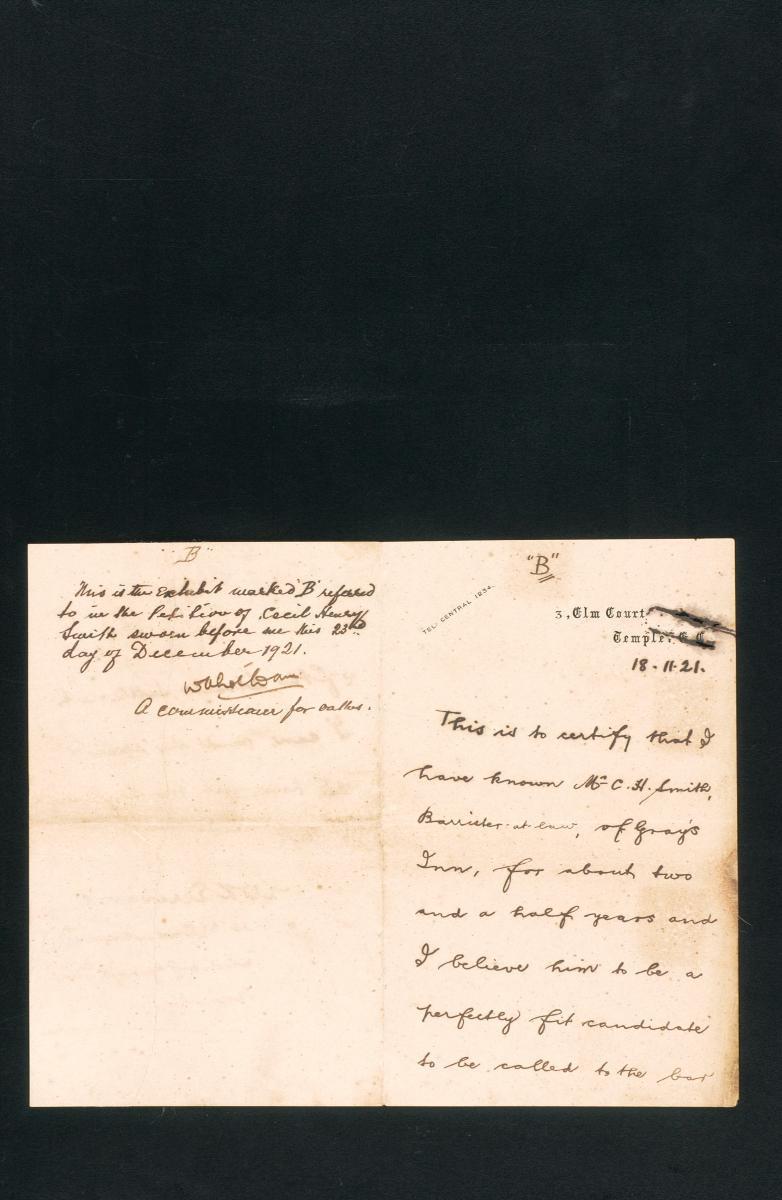 "B"
This is the Exhibit marked 'B' refered
to in the Petition of Cecil Henry
Smith sworn before me this 23rd
day of December 1921.
A commissioner for oaths.
"B"
TEL: CENTRAL 1234.
3, Elm Court
Temple. E C.
18-11-21.
This is to certify that I
have known Mr C. H. Smith,
Barrister-at-law, of Gray's
Inn, for about two
and a half years and
I believe him to be a
perfectly fit candidate
to be called to the bar